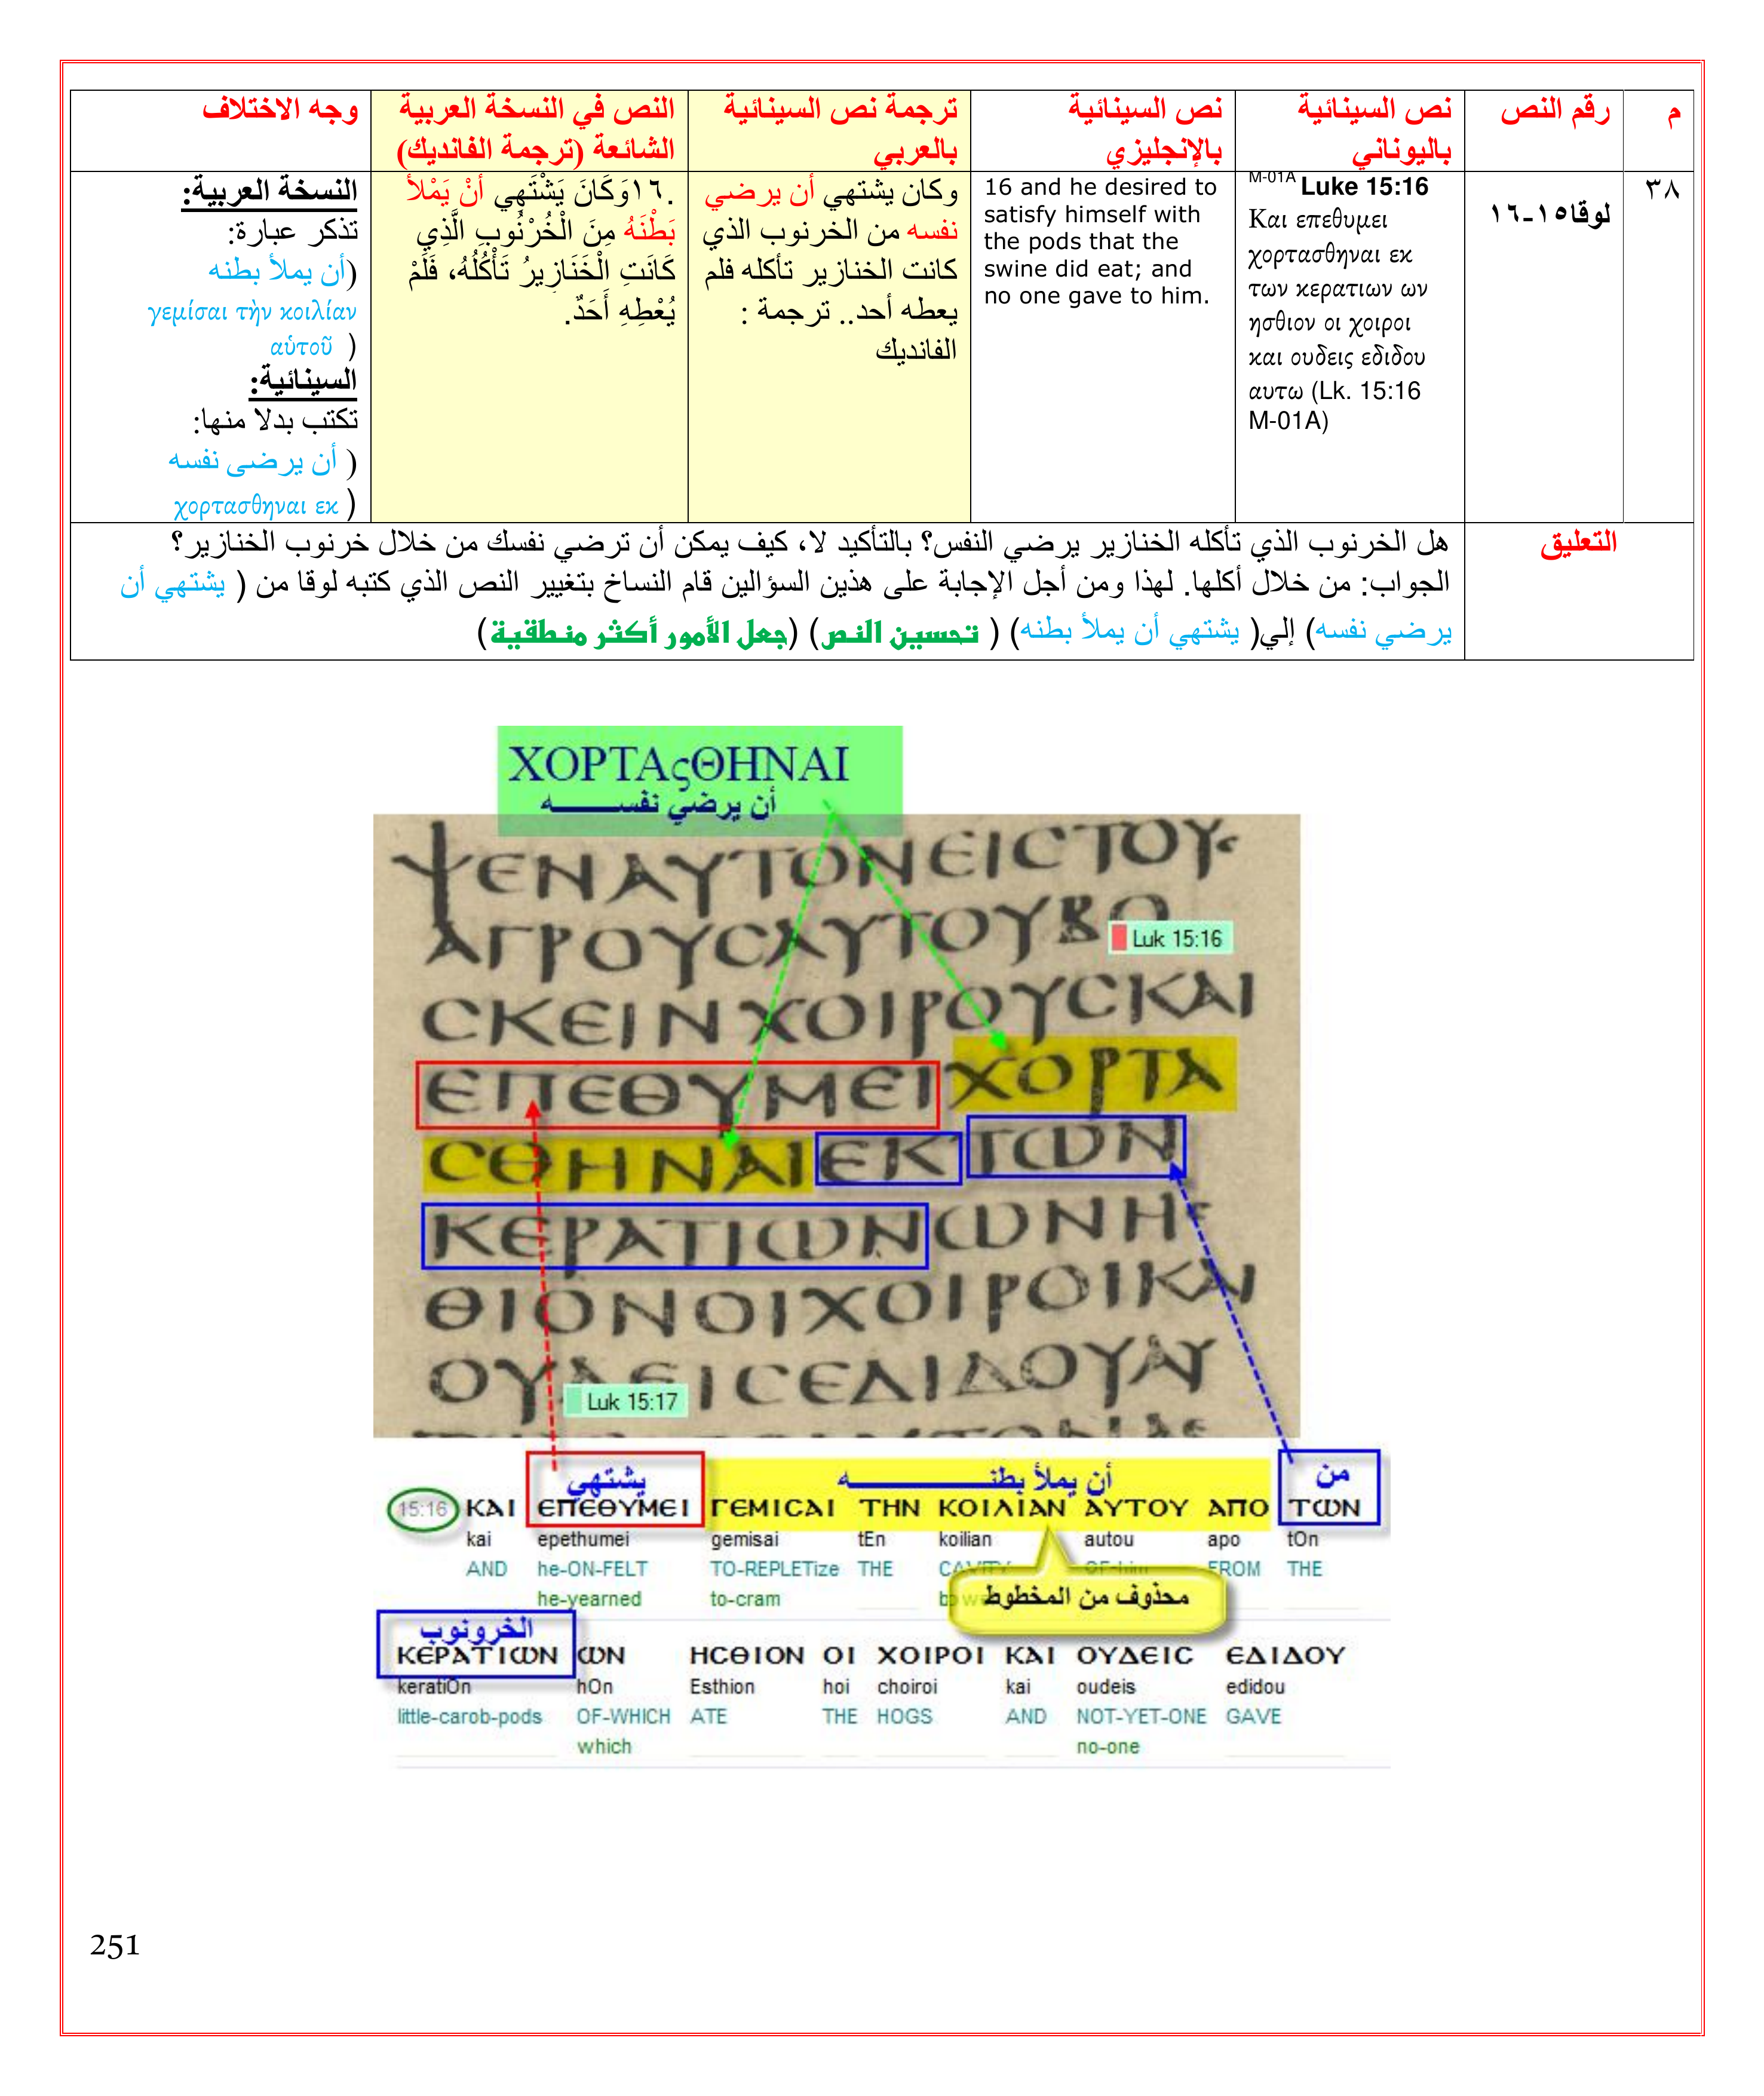 م
رقم النص
نص السينائية
باليوناني
نص السينائية
بالإنجليزي
ترجمة نص السينائية
بالعربي
النص في النسخة العربية
الشائعة (ترجمة الفانديك)
وجه الاختلاف
٣٨
لوقا١٥-١٦
M-01A Luke 15:16
Και επεθυμει
χορτασθηναι εκ
των κερατιων ων
ησθιον οι χοιροι
και ουδεις εδιδου
αυτω (Lk. 15:16
M-01A)
16 and he desired to
satisfy himself with
the pods that the
swine did eat; and
no one gave to him.
وكان يشتهي أن يرضي
نفسه من الخرنوب الذي
كانت الخنازير تأكله فلم
يعطه أحد.. ترجمة :
الفانديك
.١٦وَكَانَ يَشْتَهِي أَنْ يَمْلأَ
بَطْنَهُ مِنَ الْخُرْنُوبِ الَّذِي
كَانَتِ الْخَنَازِيرُ تَأْكُلُهُ، فَلَمْ
يُعْطِهِ أَحَدٌ.
النسخة العربية:
تذكر عبارة:
(أن يملأ بطنه
γεμίσαι τὴν κοιλίαν
αὐτοῦ )
السينائية:
تكتب بدلا منها:
( أن يرضى نفسه
χορτασθηναι εκ )
التعليق
هل الخرنوب الذي تأكله الخنازير يرضي النفس؟ بالتأكيد لا، كيف يمكن أن ترضي نفسك من خلال خرنوب الخنازير؟
الجواب: من خلال أكلها. لهذا ومن أجل الإجابة على هذين السؤالين قام النساخ بتغيير النص الذي كتبه لوقا من ( يشتهي أن
يرضي نفسه) إلي( يشتهي أن يملأ بطنه) ( تحسين النص) (جعل الأمور أكثر منطقية)
ΧΟΡΤΑςΘΗΝΑΙ
أن يرضي نفســـــه
ΨΕΝΑΥΤΟΝΕΙϹΤΟΥϹ
ΑΓΡΟΥϹΑΥΤΟΥΒΟ
Luk 15:16
ϹΚΕΙΝΧΟΙΡΟΥϹΚΑΙ
ΕΠΕΘΥΜΕΙΧΟΡΤΑ
ϹΘΗΝΑΙΕΚΤΩΝ
ΚΕΡΑΤΙΩΝΩΝΗϹ
ΘΙΟΝΟΙΧΟΙΡΟΙΚΑΙ
ΟΥΔΕΙϹΕΔΙΔΟΥΑΥ
Luk 15:17
يشتهي
أن يملأ بطنـــــــه
من
15:16 ΚΑΙ ΕΠΕΘΥΜΕΙ ΓΕΜΙϹΑΙ ΤΗΝ ΚΟΙΛΙΑΝ ΑΥΤΟΥ ΑΠΟ ΤΩΝ
kai epethumei gemisai tEn koilian autou apo tOn
AND he-ON-FELT TO-REPLETize THE CAVITY OF-him FROM THE
he-yearned to-cram
محذوف من المخطوط
الخرونوب
ΚΕΡΑΤΙΩΝ ΩΝ ΗϹΘΙΟΝ ΟΙ ΧΟΙΡΟΙ ΚΑΙ ΟΥΔΕΙϹ ΕΔΙΔΟΥ
keratiOn hOn Esthion hoi choiroi kai oudeis edidou
little-carob-pods OF-WHICH ATE THE HOGS AND NOT-YET-ONE GAVE
which no-one
251